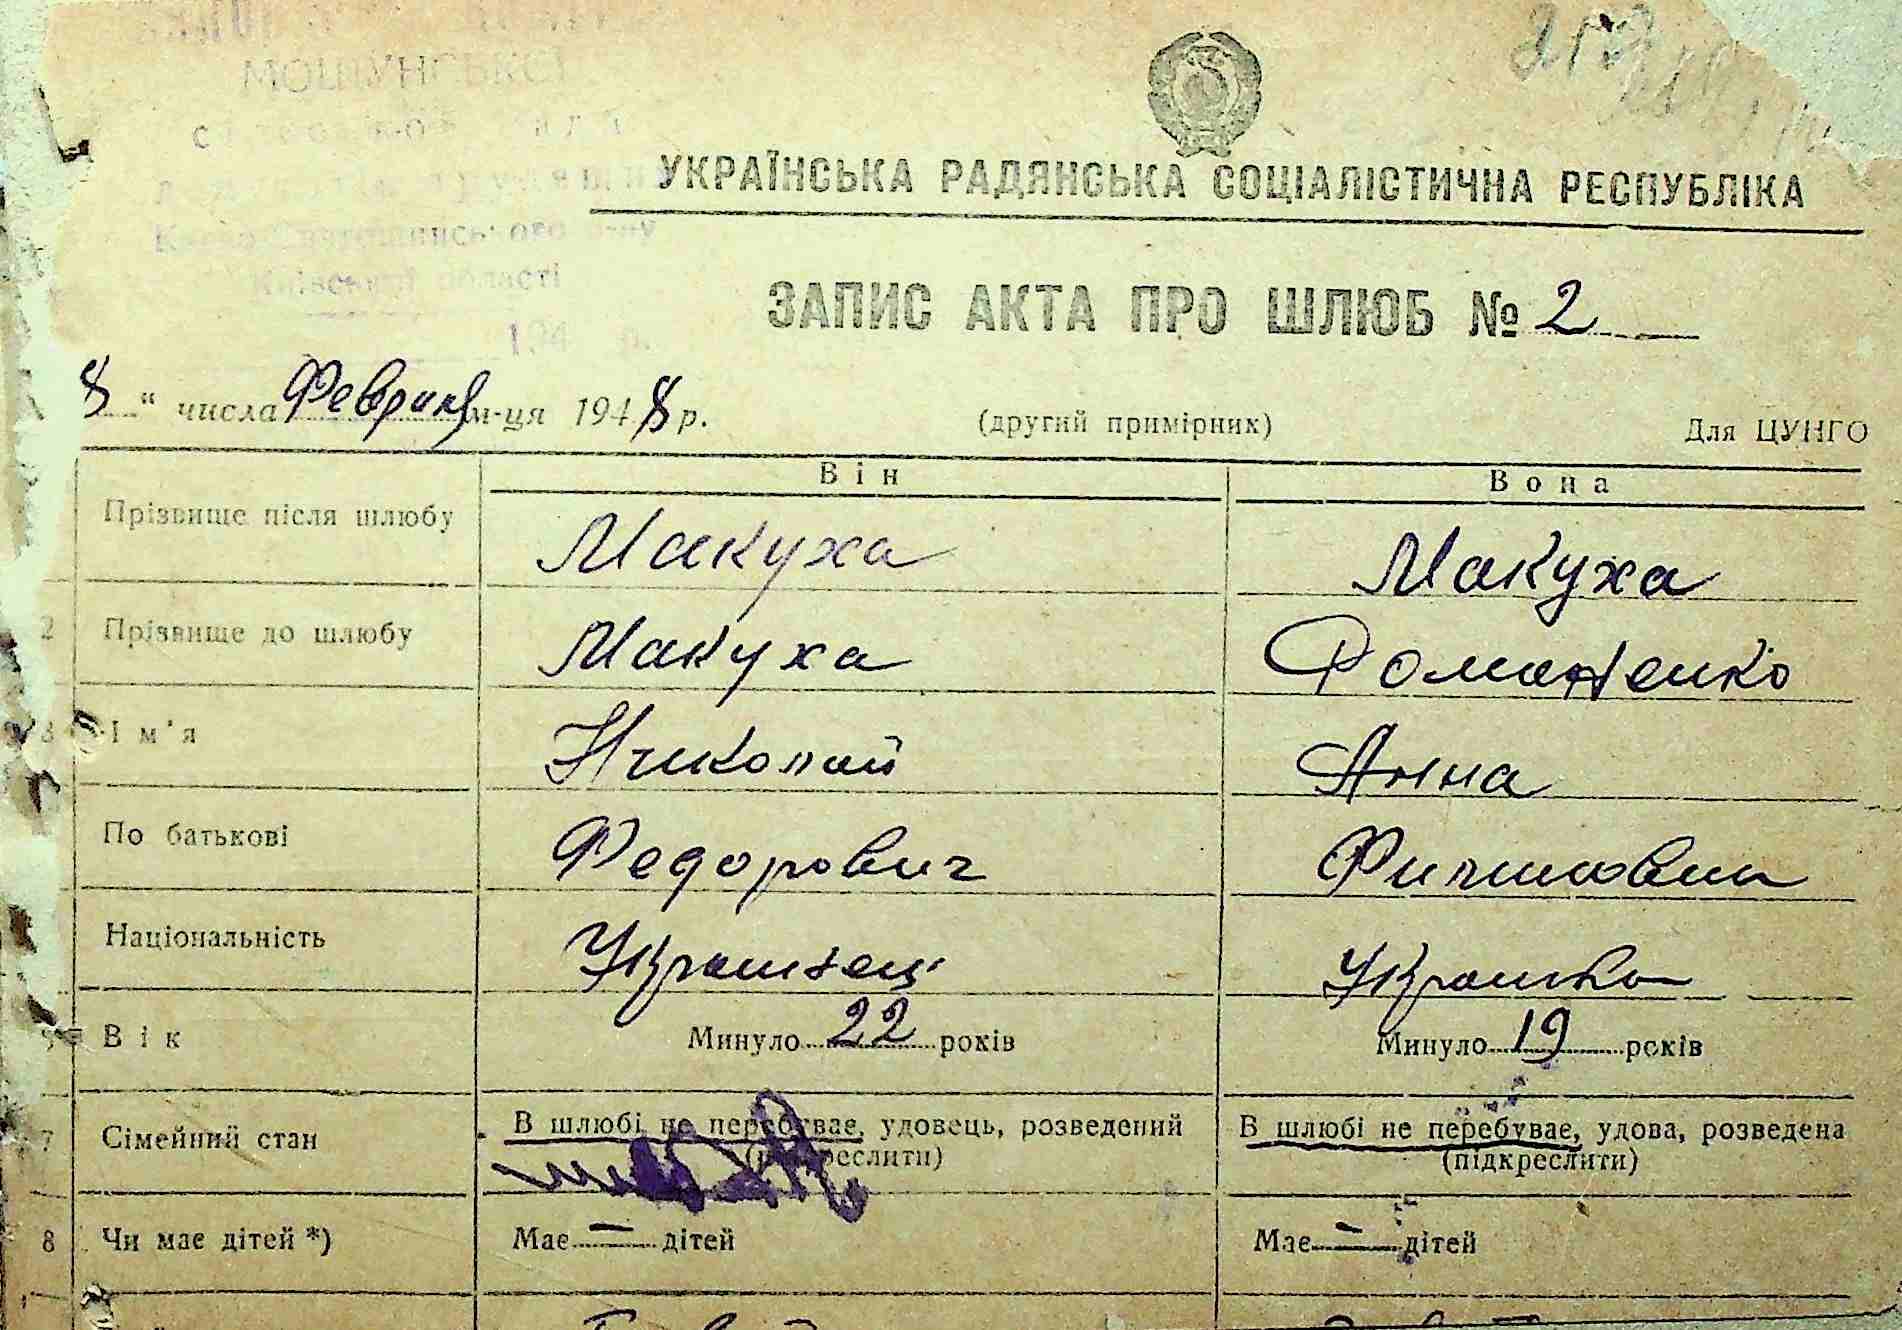 МОЩУНСЬКОЇ
Києво-Святошинського р-ну
Київської області
194 р.
УКРАЇНСЬКА РАДЯНСЬКА СОЦІАЛІСТИЧНА РЕСПУБЛІКА
ЗАПИС АКТА ПРО ШЛЮБ № 2
8 " числа Февраля м-ця 1948 р. (другий примірник) Для ЦУНГО
Він Вона
Прізвище після шлюбу Макуха Макуха
2 Прізвище до шлюбу Макуха Романенко
3 Ім'я Николай Анна
По батькові Федорович
Національність Украинец Украинка
Вік Минуло 22 років Минуло 19 років
7 Сімейний стан В шлюбі не перебуває, удовець, розведений В шлюбі не перебуває, удова, розведена
(підкреслити) (підкреслити)
8 Чи має дітей *) Має — дітей Має — дітей